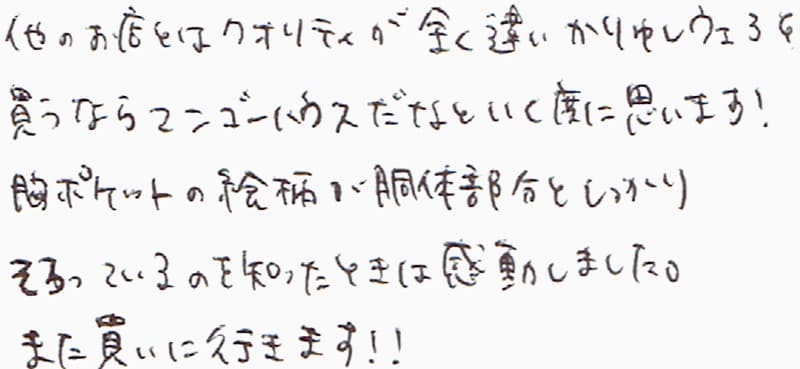 他のお店とはクオリティが全く違いかりゆしウェアを
買うならマンゴーハウスだなといく度に思います！
胸ポケットの絵柄が胴体部分としっかり
そろっているのを知ったときは感動しました。
また買いに行きます！！